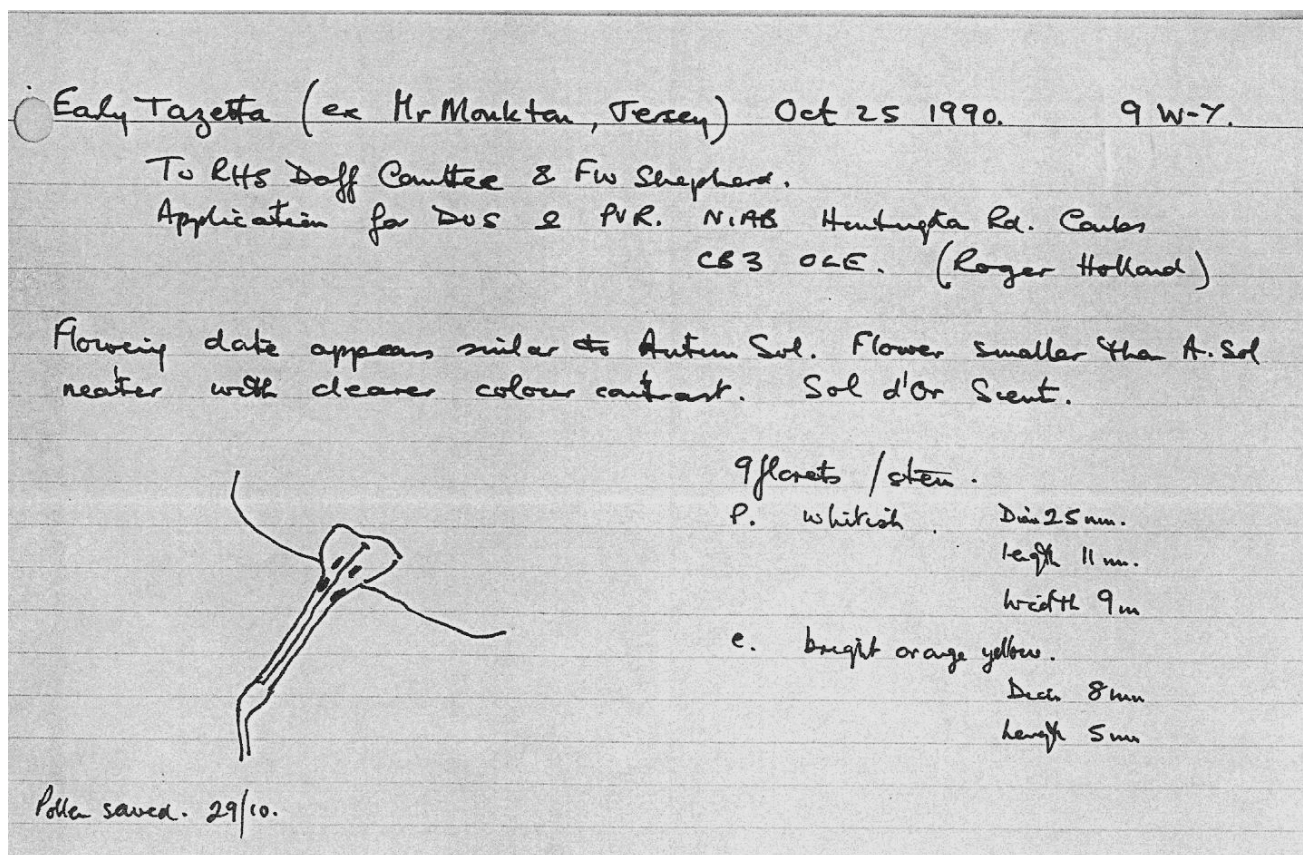 Early Tazetta (ex Mr Monkton, Jersey) Oct 25 1990. 9 W-Y.
To RHS Daff Comttee & FW Shepherd.
Application for DUS & PVR. NIAB Huntingdn Rd. Cambs
CB3 OLE. (Roger Holland)
Flowering date appears similar to Autumn Sol. Flower smaller than A. Sol
neater with clearer colour contrast. Sol d'Or Scent.
9 florets / stem.
P. whitish. Diam 25 mm.
length 11 mm.
Width 9 m
c. bright orange yellow.
Diam 8 mm
Length 5 mm
Pollen saved. 29/10.